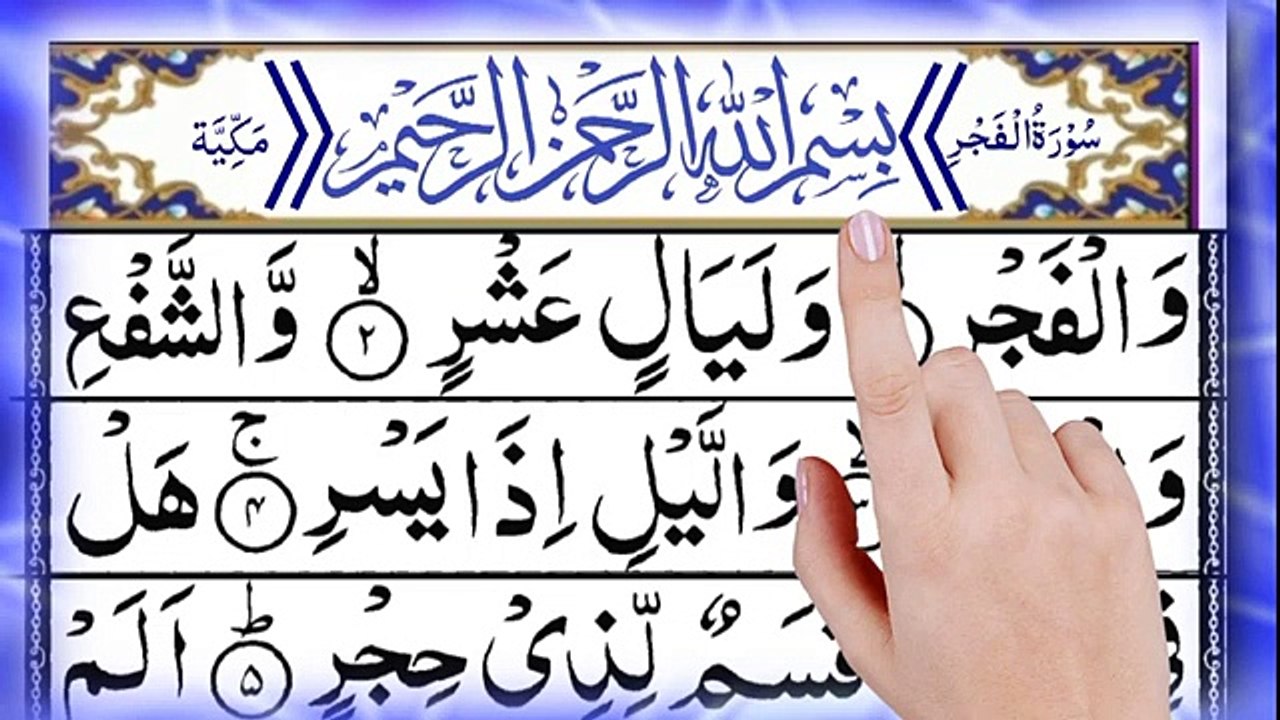 سُوْرَةُ الْفَجْرِ بِسْمِ اللّٰهِ الرَّحْمٰنِ الرَّحِيْمِ مَكِّيَّة
وَالْفَجْرِ وَلَيَالٍ عَشْرٍ ۙ﴿۲﴾ وَّالشَّفْعِ
وَ وَالَّيْلِ اِذَا يَسْرِ ۚ﴿۴﴾ هَلْ
قَسَمٌ لِّذِىْ حِجْرٍ ؕ﴿۵﴾ اَلَمْ